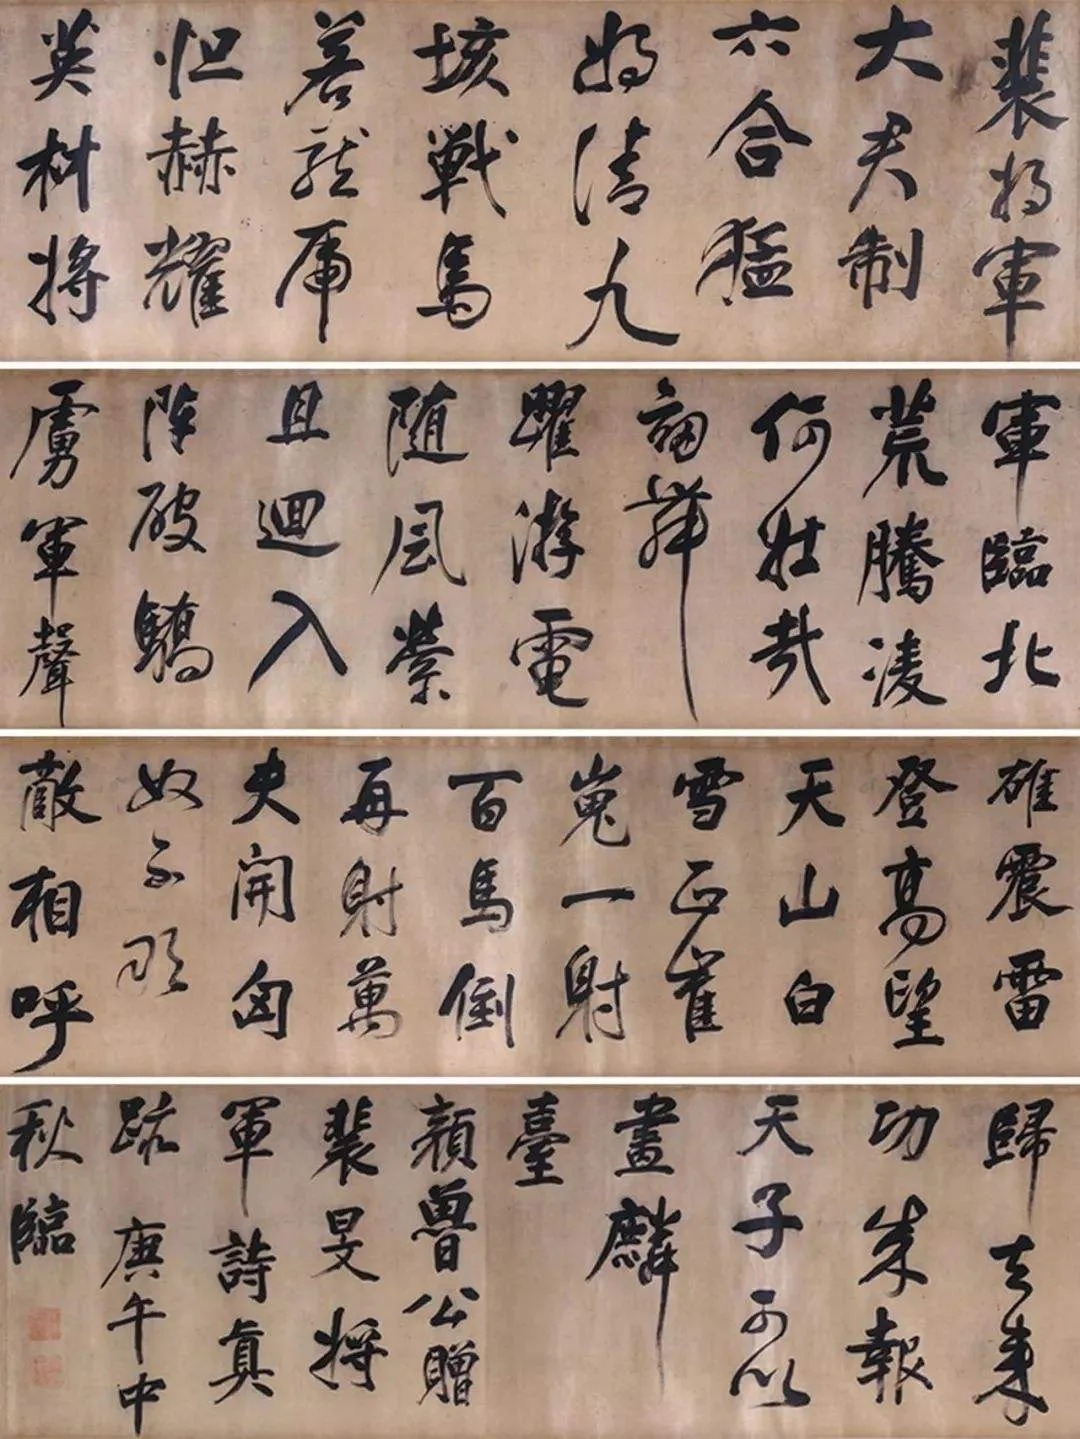 裴将軍
大君制
六合猛
将清九
垓戰馬
若龍虎
怛赫耀
英材將
軍臨北
荒騰凌
何壯哉
劒舞
躍游電
随風縈
且迴入
陣破驕
虜軍聲
雄震雷
登高望
天山白
雪正崔
嵬一射
百馬倒
再射萬
夫開匈
奴不敢
敵相呼
歸去来
功成報
天子可以
畫麟
臺
顔魯公贈
裴旻将
軍詩真
跡庚午中
秋臨